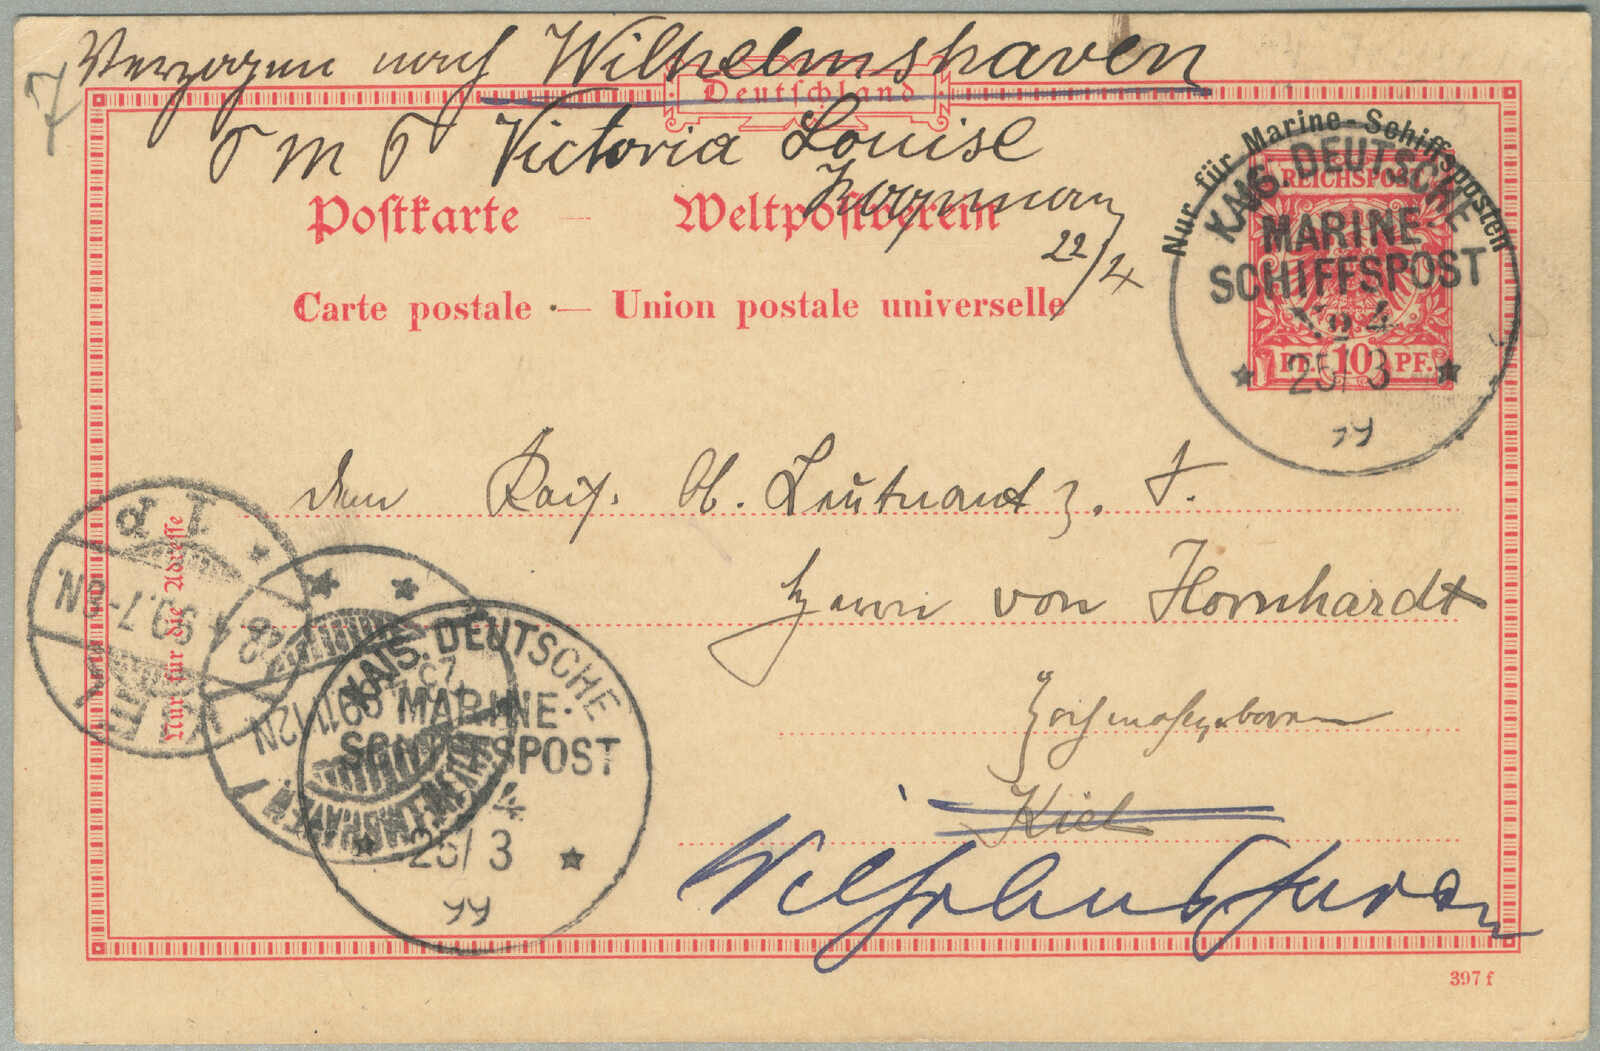 Verzogen nach Wilhelmshaven
Deutschland
S M S Victoria Louise
22/4
Postkarte — Weltpostverein
Carte postale — Union postale universelle
Nur für Marine-Schiffsposten
REICHSPOST
PF. 10 PF.
KAIS. DEUTSCHE
MARINE-
SCHIFFSPOST
No 4
25/ 3
99
dem Kais. Ob. Leutnant z. S.
Herrn von Hornhardt
Hochwohlgeboren
Kiel
Wilhelmshaven
Nur für die Adresse
KIEL
99.7-8N
1 P
WILHELMSHAVEN
11-12N
KAIS. DEUTSCHE
MARINE-
SCHIFFSPOST
4
25/ 3
99
397 f